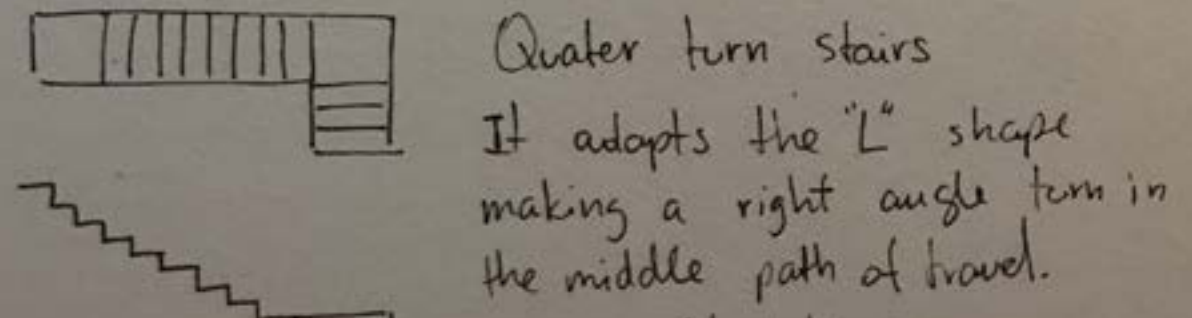 Quater turn stairs
It adapts the "L" shape
making a right angle turn in
the middle path of travel.